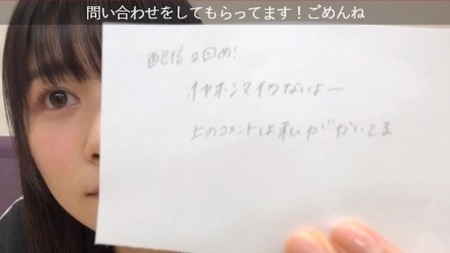 問い合わせをしてもらってます！ごめんね
配信2回め!
イヤホンマイクないよー
上のコメントは私がかいてま